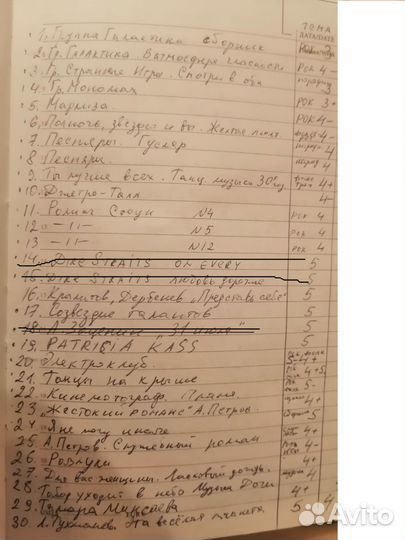 ТЕМА
ДАТА/DATE
1. Группа Галактика сборник РОК 3
2. Гр. Галактика. В атмосфере гласности РОК 4-
3. Гр. Странные Игры. Смотри в оба 3
4. Гр. Мономах РОК 3+
5. Маркиза. РОК 4-
6. Полночь, звезды и вы. Желтые 4-
7. Песняры. Гусляр 4
8. Песняры. 4
9. Ты лучше всех. Танц. музыка 30х год 4+
10. Джетро-Талл 4-
11. Роллинг Стоун N4 РОК 4
12 -11- N5 РОК 4
13 -11- N12 РОК 4
14. DIRE STRAITS ON EVERY 5
15. DIRE STRAITS любовь дороже 5
16. Дербенев „Представь себе" 5
17. Созвездие талантов 5
18. А. Зацепин „31 июня" 5
19. PATRICIA KASS 5
20. Электроклуб. 4+
21. Танцы на крыше 4+5
22. Кинематограф. Пламя. 5-
23. „ЖЕСТОКИЙ РОМАНС" А. Петров. 5
24. Я не могу иначе 4+
25. А. Петров. Служебный роман 4-
26. Розмари 4+
27. Две женщины. Ласковый дождь. 4
28. Город уходит в небо Музыка Доги 4+
29. Тамара Миансарова 5
30 Л. На весёлой планете. 4
Avito